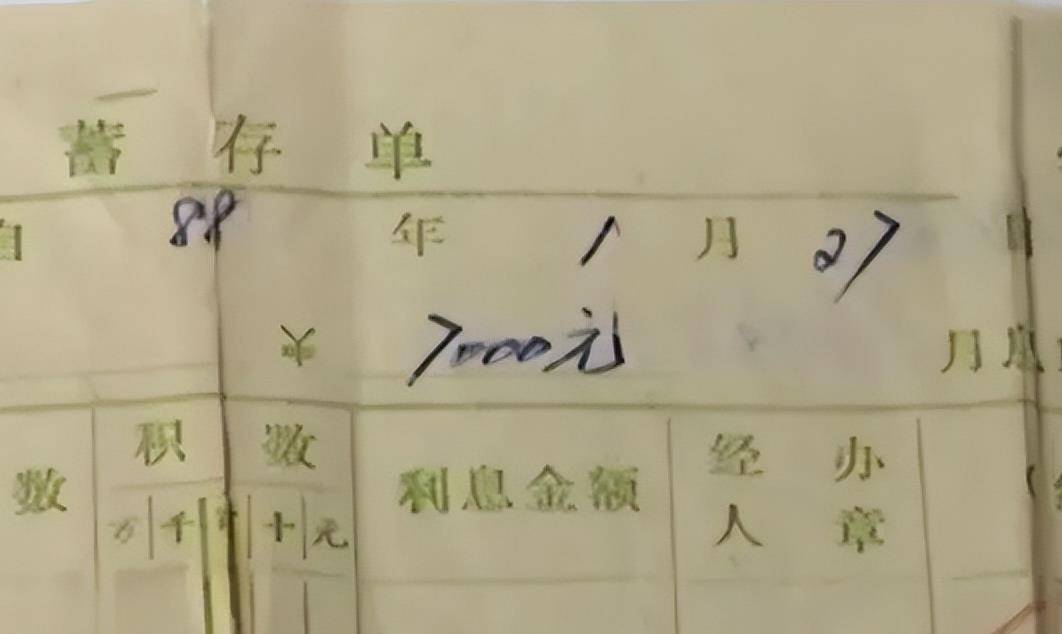 蓄存单
自 88 年 1 月 27 日
¥ 7000元 月息
数 积数 利息金额 经办
人章
万千百十元